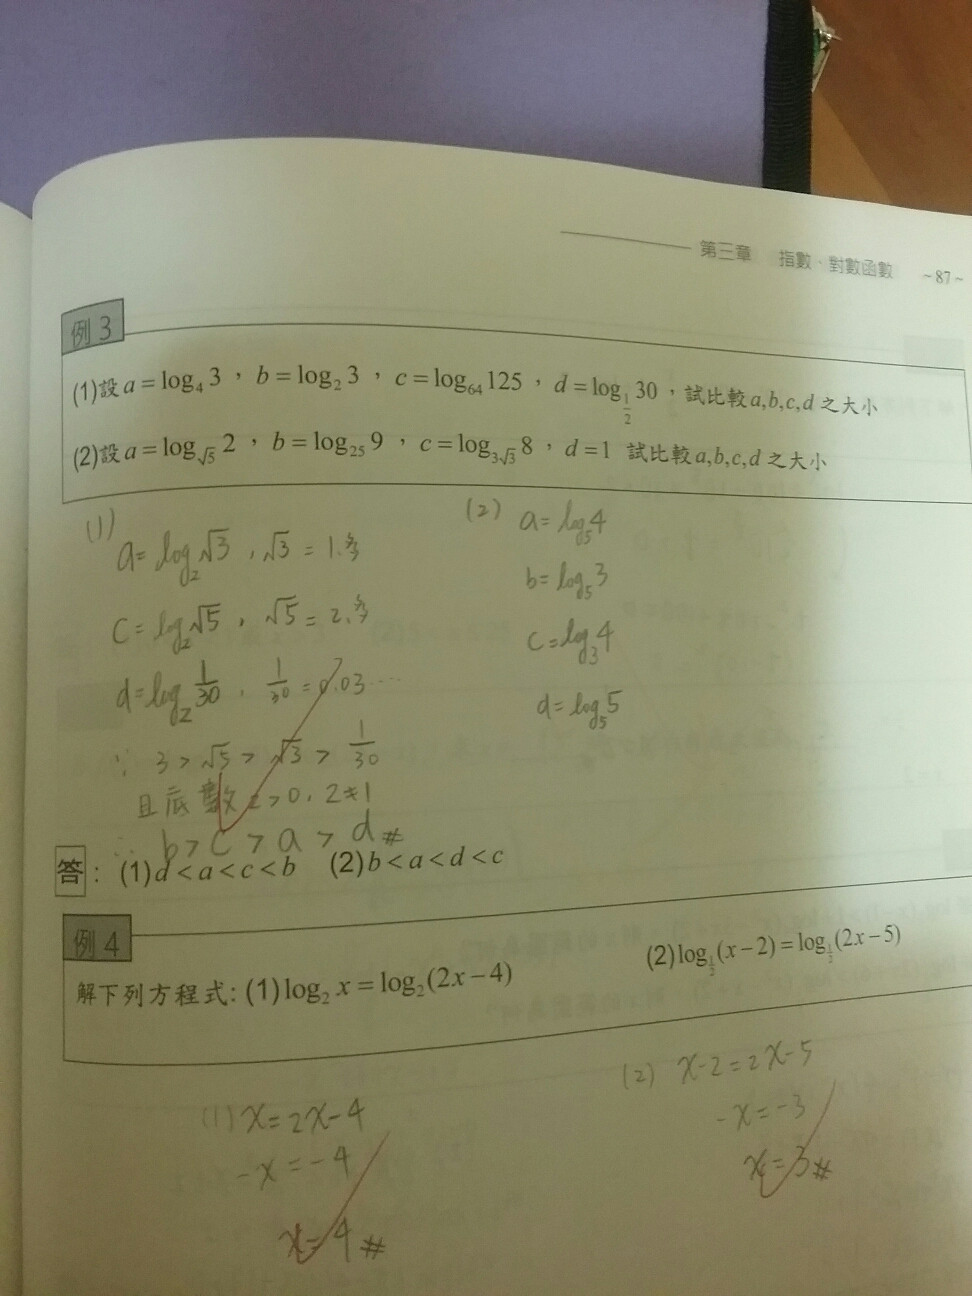 第三章 指數、對數函數 ~87~
例 3
(1)設 a = log₄ 3 , b = log₂ 3 , c = log₆₄ 125 , d = log_{1/2} 30 , 試比較 a,b,c,d 之大小
(2)設 a = log_{√5} 2 , b = log₂₅ 9 , c = log_{3√3} 8 , d = 1 試比較 a,b,c,d 之大小
(1)
a = log₂ √3 , √3 = 1.多
c = log₂ √5 , √5 = 2.多
d = log₂ 1/30 , 1/30 = 0.03 ...
∵ 3 > √5 > √3 > 1/30
且底數 2 > 0 , 2 ≠ 1
∴ b > c > a > d #
(2) a = log₅ 4
b = log₅ 3
c = log₃ 4
d = log₅ 5
答 : (1) d < a < c < b (2) b < a < d < c
例 4
解下列方程式: (1) log₂ x = log₂ (2x − 4) (2) log_{1/3} (x − 2) = log_{1/3} (2x − 5)
(1) x = 2x − 4
−x = −4
x = 4 #
(2) x − 2 = 2x − 5
−x = −3
x = 3 #